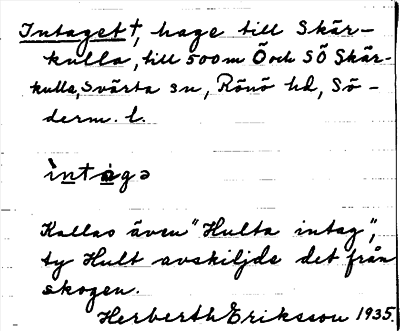 Intaget †, hage till Skär-
kulla, till 500 m Ö och SÖ Skär-
kulla, Svärta sn, Rönö hd, Sö-
derm. l.
ìntágə
Kallas även "Hulta intag",
ty Hult avskiljde det från
skogen.
Herberth Eriksson 1935.